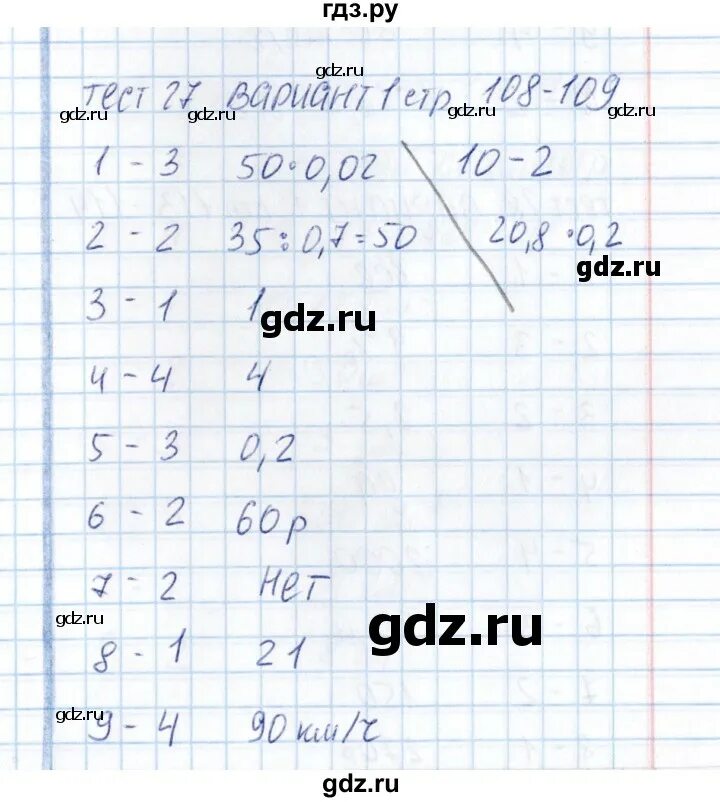 гдз.ру
gdz.ru
тест 27 вариант 1 стр 108-109
gdz.ru gdz.ru gdz.ru
1 - 3 50·0,02 10 - 2
2 - 2 35:0,7=50 20,8·0,2
gdz.ru
3 - 1 1
gdz.ru
4 - 4 4
5 - 3 0,2
6 - 2 60р
7 - 2 Нет
gdz.ru gdz.ru
8 - 1 21
gdz.ru
9 - 4 90 км/ч
gdz.ru